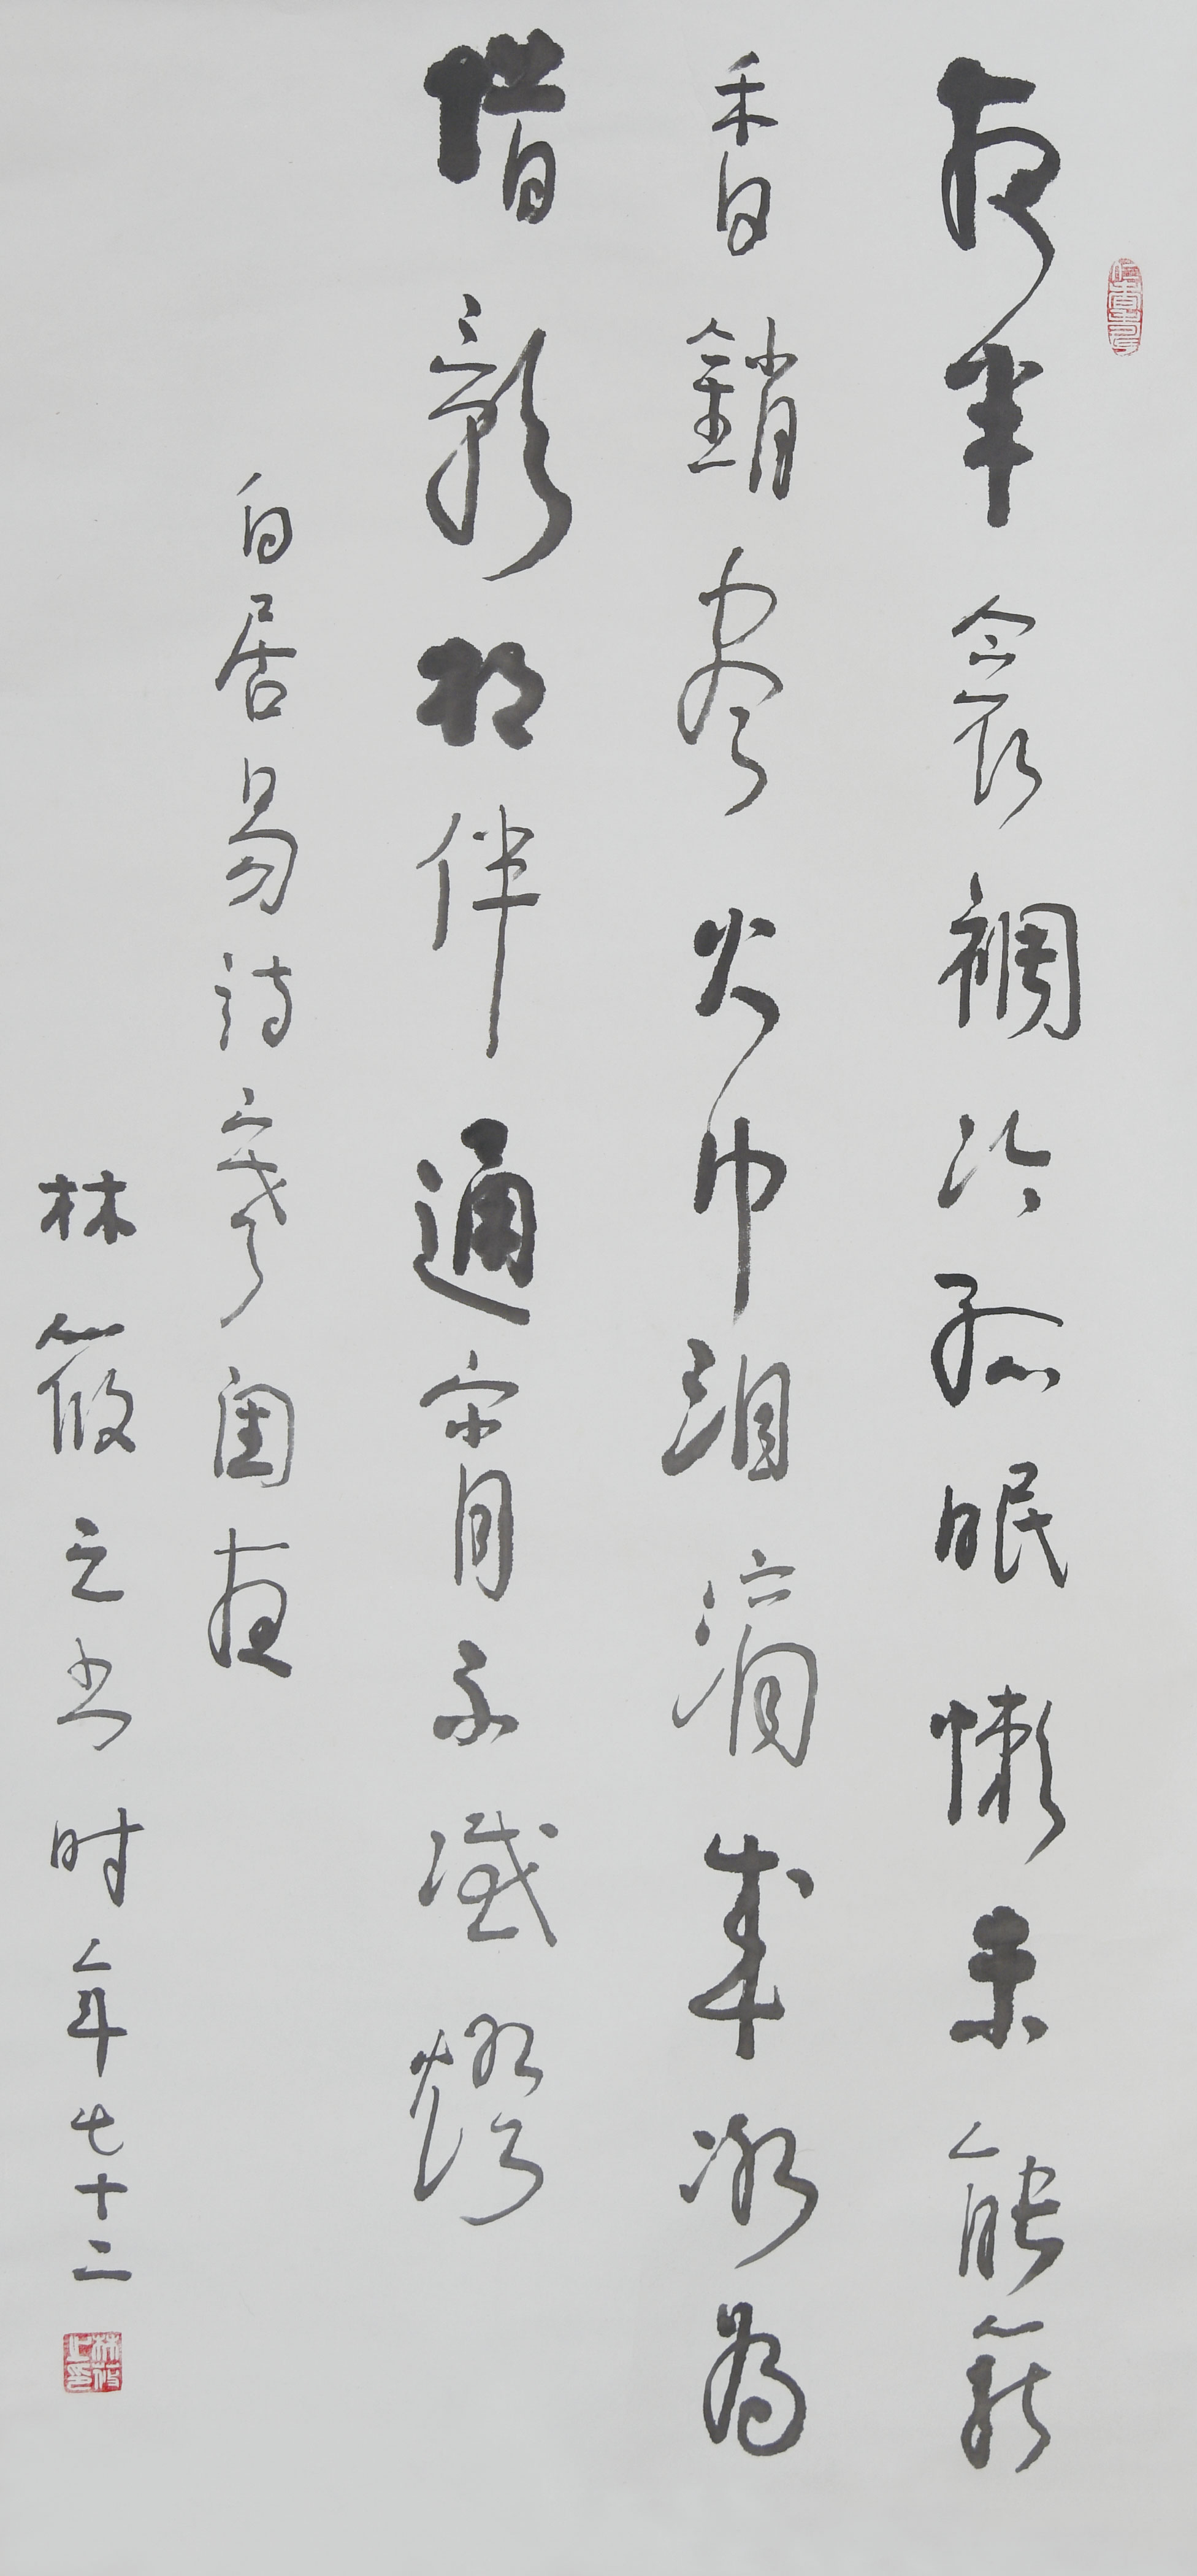 夜半衾裯冷孤眠懒未能笼
香销尽火巾泪滴成冰为
惜影相伴通宵不灭灯
白居易诗寒闺夜
林筱之书时年七十二